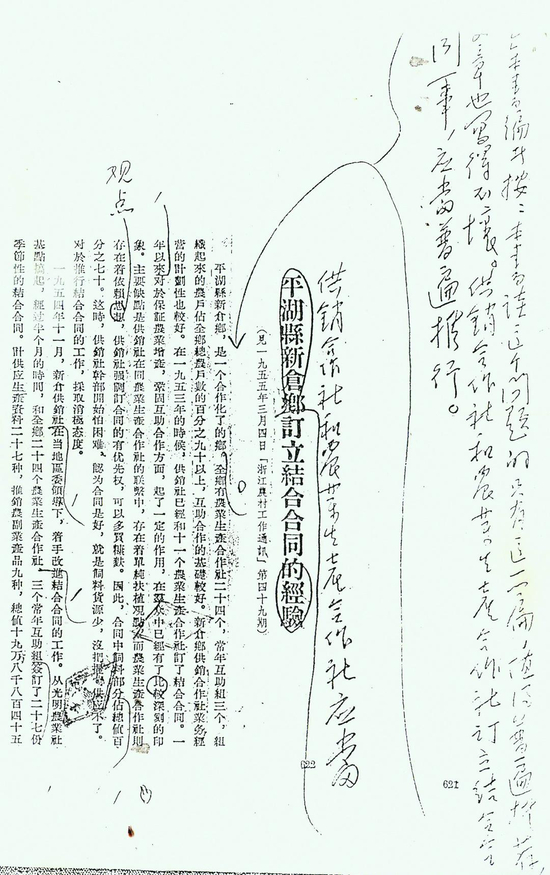 本书编者按：本书谈这个问题的只有这一篇，值得普遍推荐，
文章也写得不坏。供销合作社和农业生产合作社订立结合合
同一事，应当普遍推行。
621
供销合作社和农业生产合作社应当
622
平湖縣新倉鄉訂立結合合同的經驗
（見一九五五年三月四日「浙江農村工作通訊」第四十九期）
平湖縣新倉鄉，是一個合作化了的鄉。全鄉有農業生產合作社二十四個，常年互助組三個，組
織起來的農戶佔全鄉總農戶數的百分之九十以上，互助合作的基礎較好。新倉鄉供銷合作社業务經
營的計劃性也較好。在一九五三年的時候，供銷社已經和十一个農業生產合作社訂了結合合同。一
年以來對於保証農業增產，鞏固互助合作方面，起了一定的作用，在羣众中已經有了比較深刻的印
象。主要缺點是供銷社在同農業生產合作社的联繫中，存在着單純扶植观點，而農業生產合作社則
观点
存在着依賴思想，供銷社强調訂合同的有优先权，可以多買豬麩。因此，合同中飼料部分佔總値百
分之七十。這時，供銷社幹部開始怕困难，認为合同是好，就是飼料貨源少，沒把握，供应不了。
對於推行結合合同的工作，採取消極态度。
一九五四年十一月，新倉供銷社在当地區委領導下，着手改進結合合同的工作。从光明農業社
基點搞起，經过半个月的時間，和全鄉二十四个農業生產合作社、三个常年互助組簽訂了二十七份
季節性的結合合同。計供应生產資料二十七種，推銷農副業產品九種，總値十九万八千八百四十五